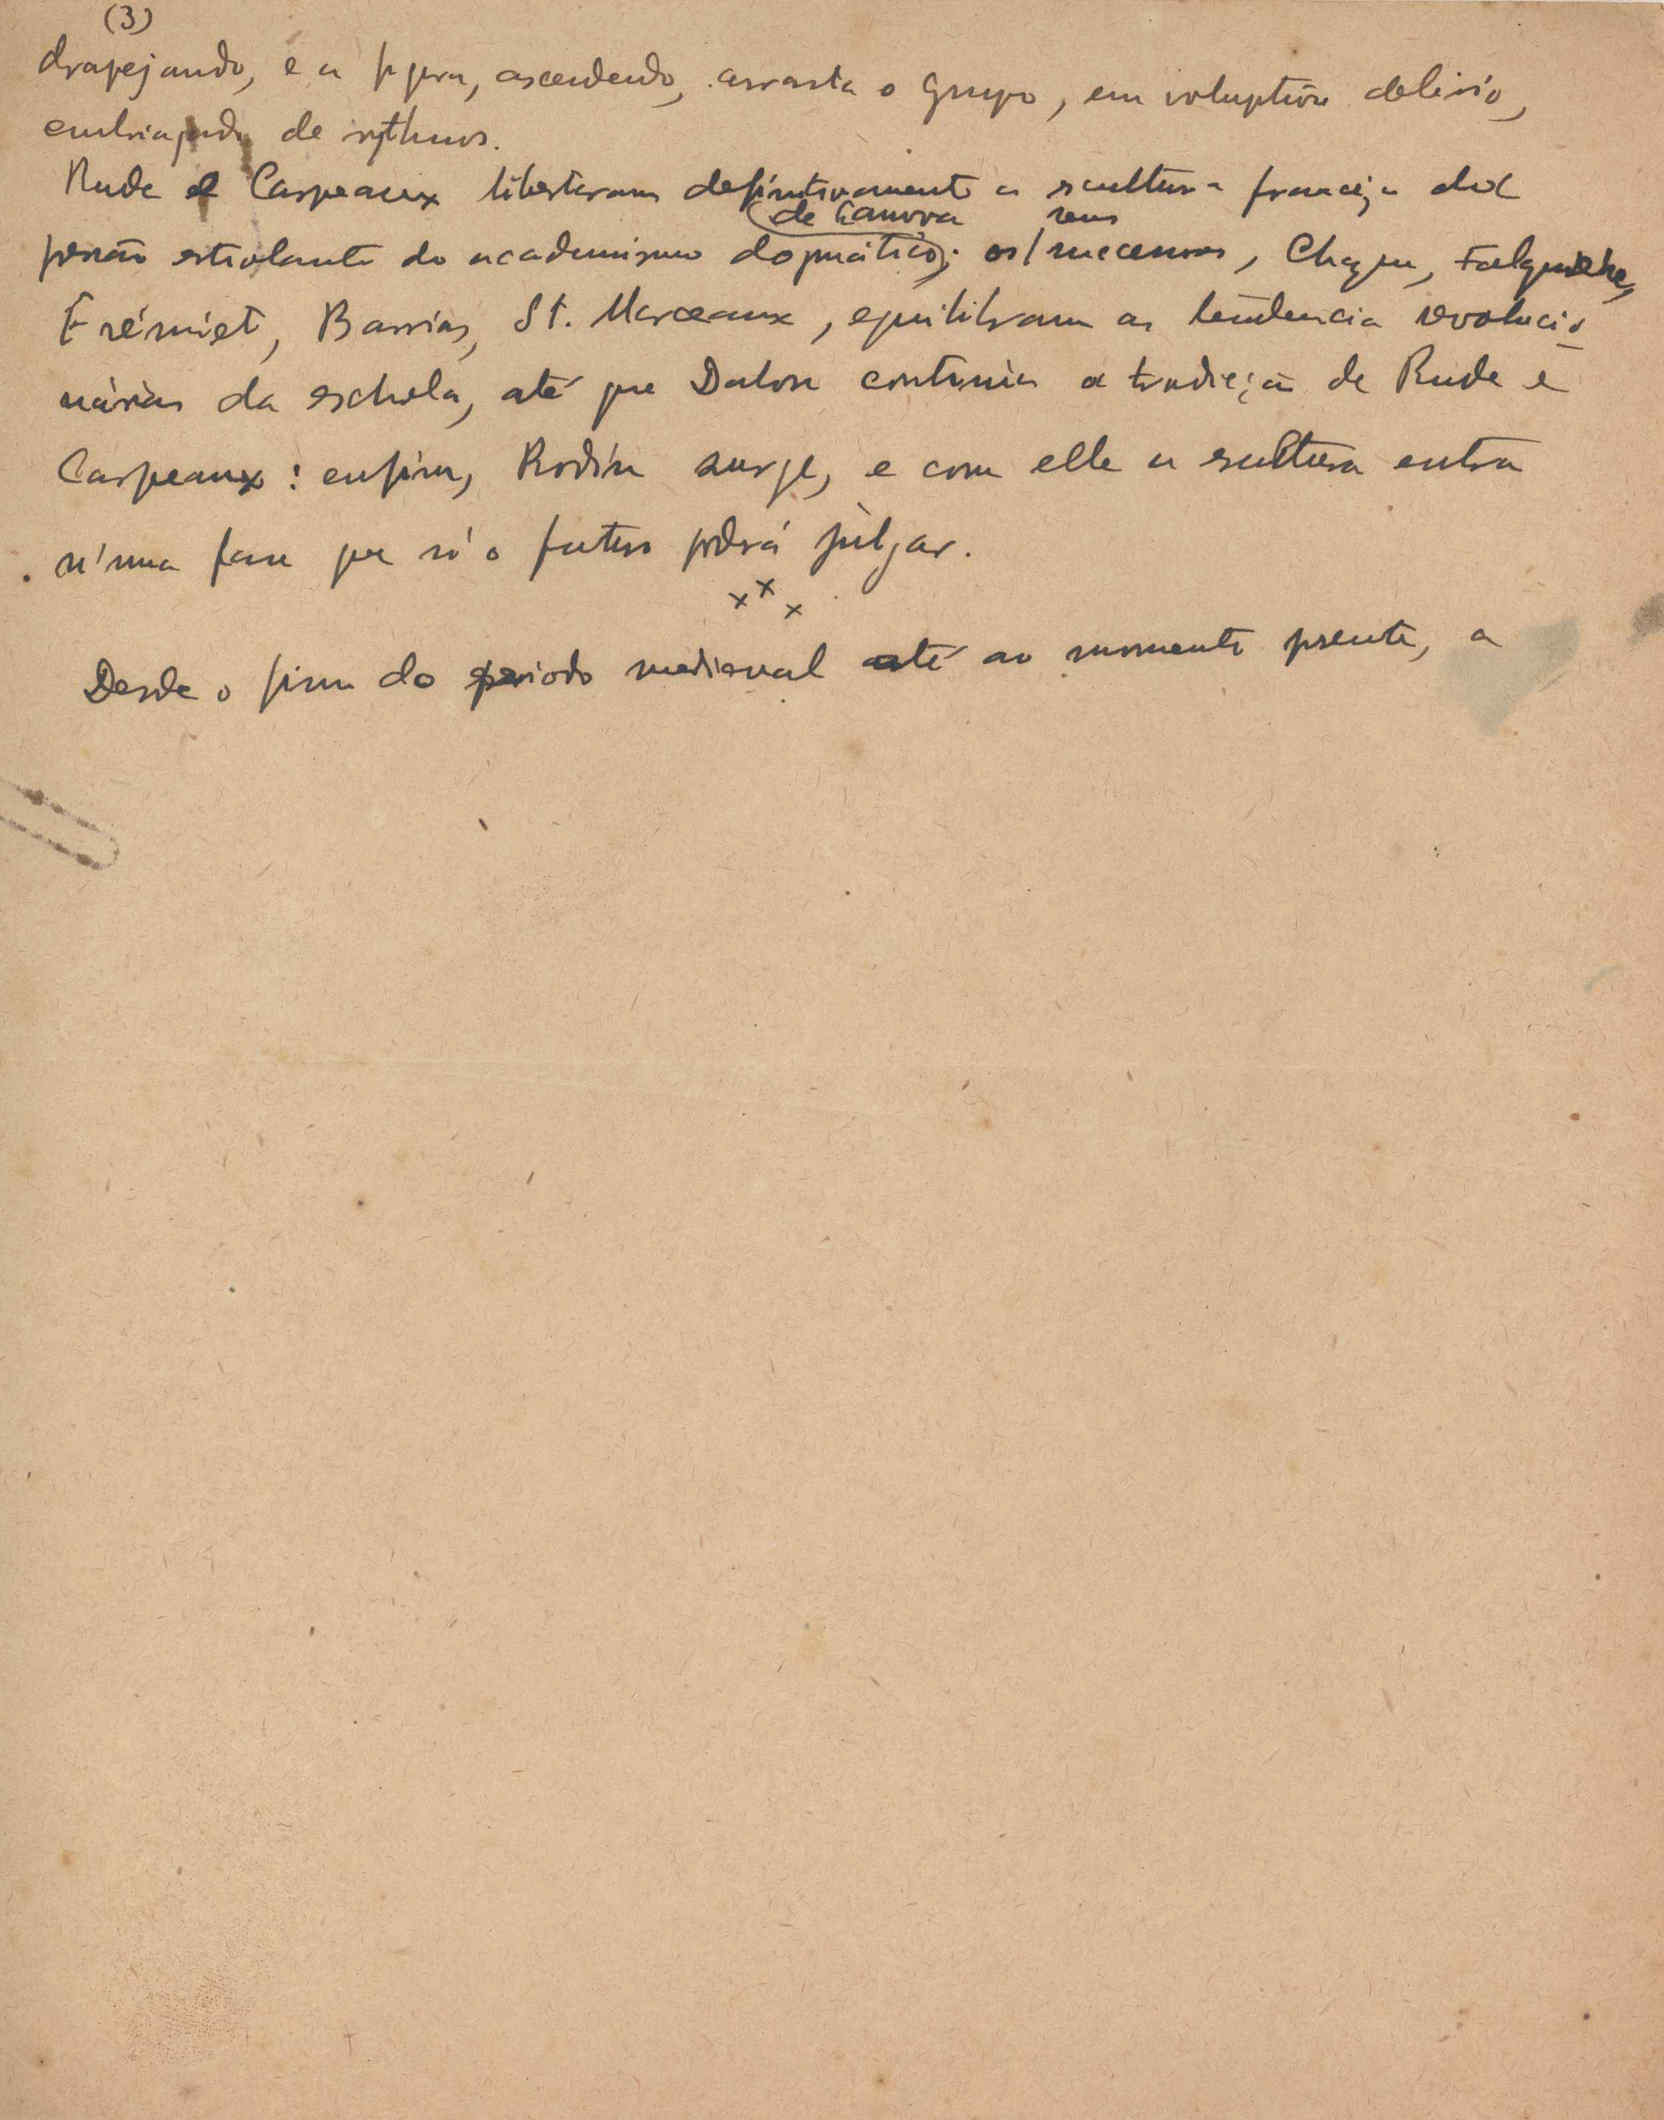 (3)
drapejando, e a figura, ascendendo, arrasta o grupo, em voluptuoso delirio,
embriagado de rythmos.
Rude e Carpeaux libertaram definitivamente a scultura franceza da
de Canova seus
pressão estiolante do academismo dogmático; os successores, Chapu, Falguière,
Frémiet, Barrias, St. Marceaux, equilibram as tendencias revolucio
nárias da eschola, até que Dalou continúa a tradicção de Rude e
Carpeaux: enfim, Rodin surge, e com elle a scultura entra
n'uma fase que só o futuro poderá julgar.
x x x
Desde o fim do periodo medieval até ao momento presente, a